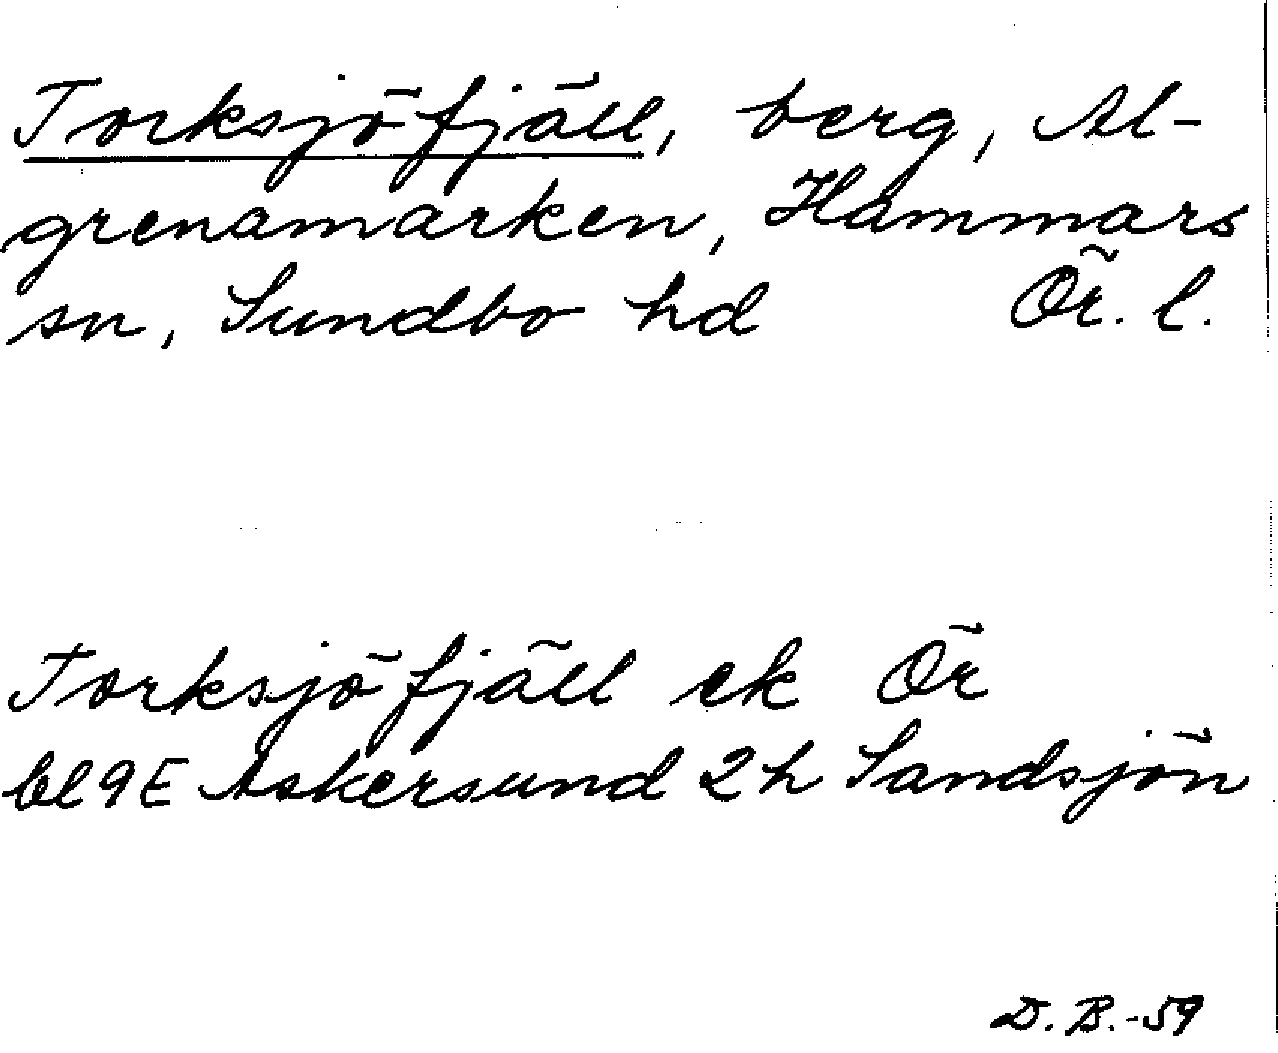 Torksjöfjäll, berg, Al-
grenamarken, Hammars
sn, Sundbo hd Ör. l.
Torksjöfjäll ek Ör
bl 9E Askersund 2h Sandsjön
D. B. -59